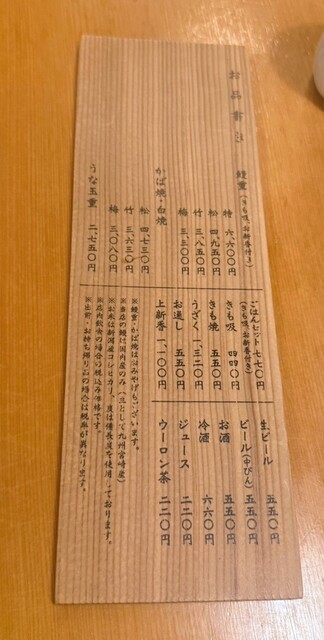 お品書き
鰻重(きも吸、お新香付き)
特 六、六〇〇円
松 四、九五〇円
竹 三、八五〇円
梅 三、三〇〇円
かば焼・白焼
松 四、七三〇円
竹 三、六三〇円
梅 三、〇八〇円
うな玉重 二、七五〇円
ごはんセット 七七〇円
(きも吸、お新香付き)
きも吸 四四〇円
きも焼 五五〇円
うざく 一、三二〇円
お通し 五五〇円
上新香 一、一〇〇円
生ビール 五五〇円
ビール(中びん) 五五〇円
お酒 五五〇円
冷酒 六六〇円
ジュース 二二〇円
ウーロン茶 二二〇円
※鰻重・かば焼はおみやげもございます。
※当店の鰻は国内産のみ(主として九州宮崎産)
※お米は新潟産コシヒカリ、炭は備長炭を使用しております。
※店内飲食の場合の税込み価格です。
※出前・お持ち帰り品の場合は税率が異なります。